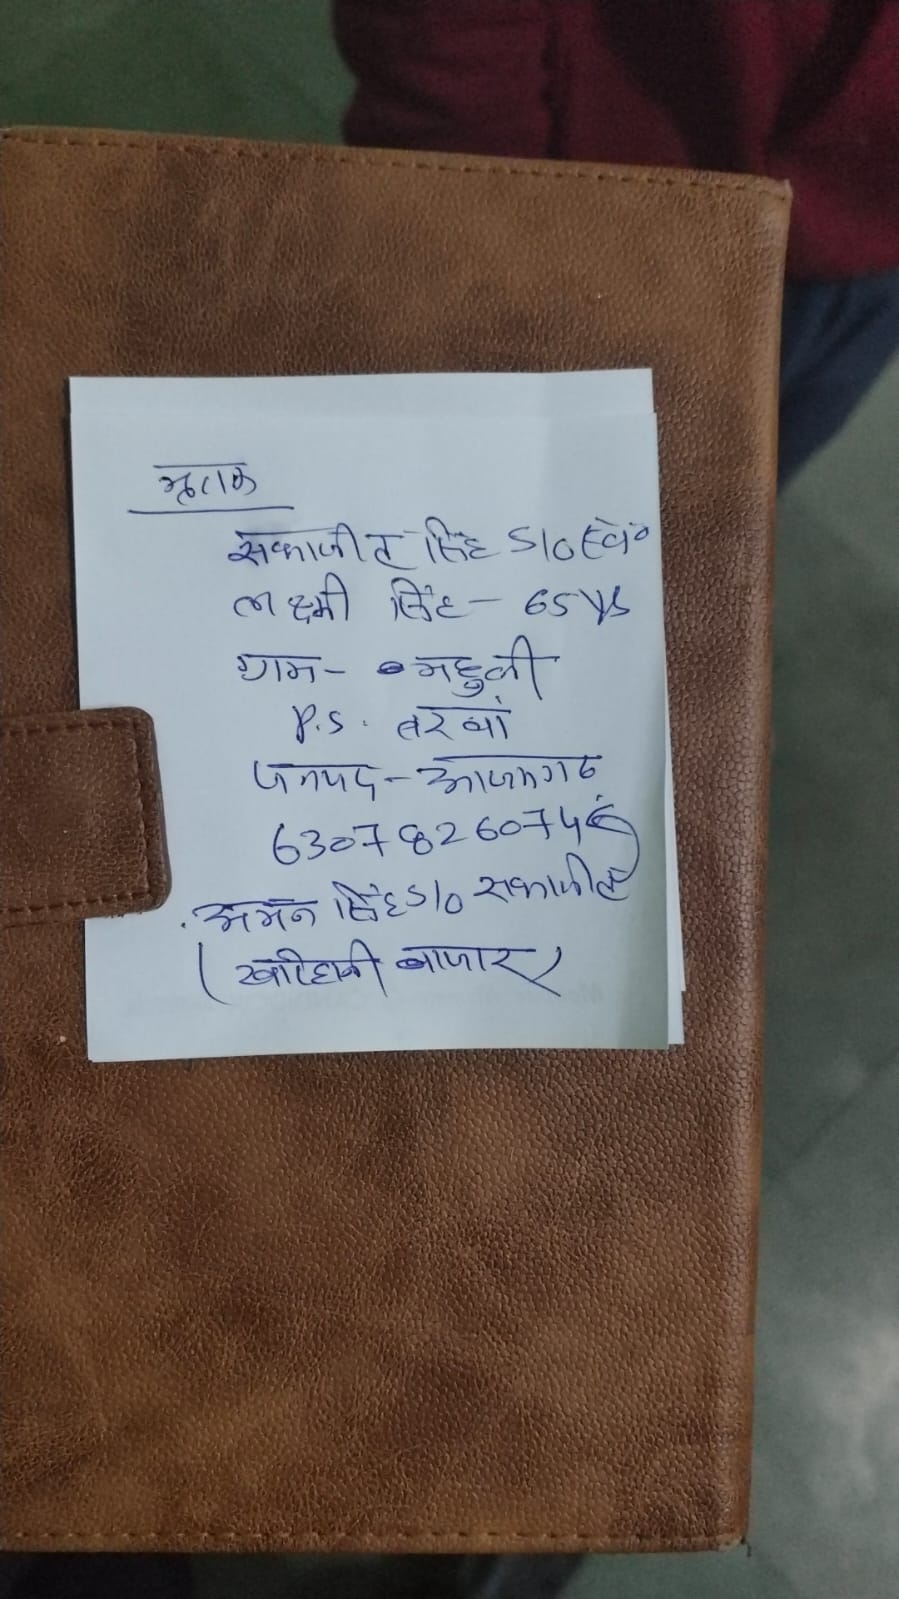 मृतक
सकाजीत सिंह S/o स्व०
लक्ष्मी सिंह - 65 Ys
ग्राम - महुली
P.S. तरवां
जनपद - आजमगढ
6307826074
अमन सिंह S/o सकाजीत
(खरिहानी बाजार)